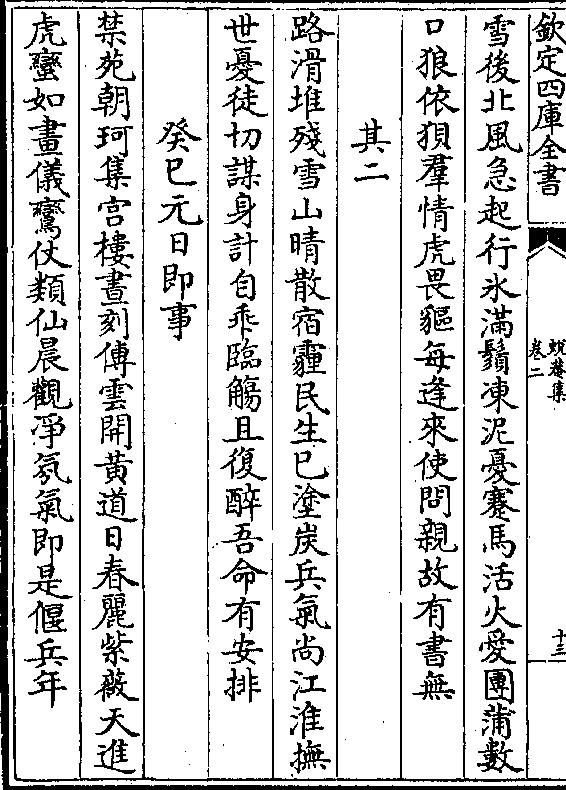 欽定四庫全書
蛻菴集
卷二
十三
雪後北風急起行氷滿鬚凍泥憂蹇馬活火愛團蒲數
口狼依狽羣情虎畏貙每逢來使問親故有書無
其二
路滑堆殘雪山晴散宿霾民生已塗炭兵氣尚江淮撫
世憂徒切謀身計自乖臨觴且復醉吾命有安排
癸巳元日即事
禁苑朝珂集宫樓晝刻傳雲開黃道日春麗紫薇天進
虎蠻如畫儀鸞仗類仙晨觀淨氛氣即是偃兵年